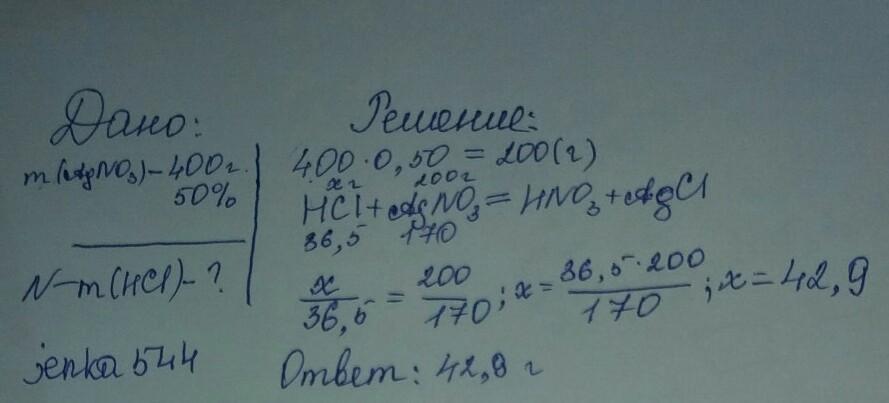 Дано:
m(AgNO3)-400г.
50%
N-m(HCl)-?
jenka 544
Решение:
400·0,50=200(г)
xг 200г
HCl+AgNO3=HNO3+AgCl
36,5 170
x/36,5 = 200/170; x= 36,5·200/170; x=42,9
Ответ: 42,9 г